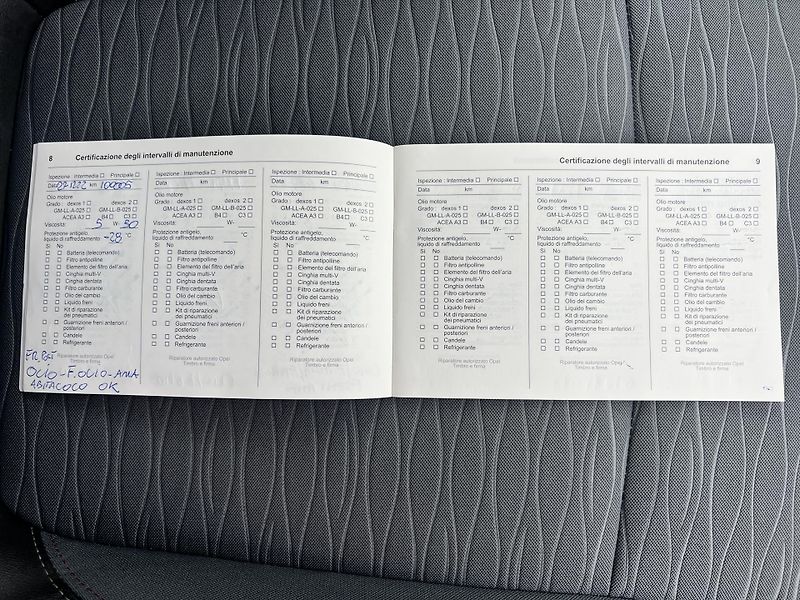 8 Certificazione degli intervalli di manutenzione
Ispezione : Intermedia □ Principale □
Data 271222 km 100005
Olio motore
Grado : dexos 1 □ dexos 2 □
GM-LL-A-025 □ GM-LL-B-025 □
ACEA A3 □ B4 □ C3 □
Viscosità: 5 W- 30
Protezione antigelo,
liquido di raffreddamento -28 °C
Sì No
□ □ Batteria (telecomando)
□ □ Filtro antipolline
□ □ Elemento del filtro dell'aria
□ □ Cinghia multi-V
□ □ Cinghia dentata
□ □ Filtro carburante
□ □ Olio del cambio
□ □ Liquido freni
□ □ Kit di riparazione
dei pneumatici
□ □ Guarnizione freni anteriori /
posteriori
□ □ Candele
□ □ Refrigerante
Riparatore autorizzato Opel
Timbro e firma
OLIO-F.OLIO-ARIA
ABITACOLO OK
Ispezione : Intermedia □ Principale □
Data km
Olio motore
Grado : dexos 1 □ dexos 2 □
GM-LL-A-025 □ GM-LL-B-025 □
ACEA A3 □ B4 □ C3 □
Viscosità: W-
Protezione antigelo,
liquido di raffreddamento °C
Sì No
□ □ Batteria (telecomando)
□ □ Filtro antipolline
□ □ Elemento del filtro dell'aria
□ □ Cinghia multi-V
□ □ Cinghia dentata
□ □ Filtro carburante
□ □ Olio del cambio
□ □ Liquido freni
□ □ Kit di riparazione
dei pneumatici
□ □ Guarnizione freni anteriori /
posteriori
□ □ Candele
□ □ Refrigerante
Riparatore autorizzato Opel
Timbro e firma
Ispezione : Intermedia □ Principale □
Data km
Olio motore
Grado : dexos 1 □ dexos 2 □
GM-LL-A-025 □ GM-LL-B-025 □
ACEA A3 □ B4 □ C3 □
Viscosità: W-
Protezione antigelo,
liquido di raffreddamento °C
Sì No
□ □ Batteria (telecomando)
□ □ Filtro antipolline
□ □ Elemento del filtro dell'aria
□ □ Cinghia multi-V
□ □ Cinghia dentata
□ □ Filtro carburante
□ □ Olio del cambio
□ □ Liquido freni
□ □ Kit di riparazione
dei pneumatici
□ □ Guarnizione freni anteriori /
posteriori
□ □ Candele
□ □ Refrigerante
Riparatore autorizzato Opel
Timbro e firma
Certificazione degli intervalli di manutenzione 9
Ispezione : Intermedia □ Principale □
Data km
Olio motore
Grado : dexos 1 □ dexos 2 □
GM-LL-A-025 □ GM-LL-B-025 □
ACEA A3 □ B4 □ C3 □
Viscosità: W-
Protezione antigelo,
liquido di raffreddamento °C
Sì No
□ □ Batteria (telecomando)
□ □ Filtro antipolline
□ □ Elemento del filtro dell'aria
□ □ Cinghia multi-V
□ □ Cinghia dentata
□ □ Filtro carburante
□ □ Olio del cambio
□ □ Liquido freni
□ □ Kit di riparazione
dei pneumatici
□ □ Guarnizione freni anteriori /
posteriori
□ □ Candele
□ □ Refrigerante
Riparatore autorizzato Opel
Timbro e firma
Ispezione : Intermedia □ Principale □
Data km
Olio motore
Grado : dexos 1 □ dexos 2 □
GM-LL-A-025 □ GM-LL-B-025 □
ACEA A3 □ B4 □ C3 □
Viscosità: W-
Protezione antigelo,
liquido di raffreddamento °C
Sì No
□ □ Batteria (telecomando)
□ □ Filtro antipolline
□ □ Elemento del filtro dell'aria
□ □ Cinghia multi-V
□ □ Cinghia dentata
□ □ Filtro carburante
□ □ Olio del cambio
□ □ Liquido freni
□ □ Kit di riparazione
dei pneumatici
□ □ Guarnizione freni anteriori /
posteriori
□ □ Candele
□ □ Refrigerante
Riparatore autorizzato Opel
Timbro e firma
Ispezione : Intermedia □ Principale □
Data km
Olio motore
Grado : dexos 1 □ dexos 2 □
GM-LL-A-025 □ GM-LL-B-025 □
ACEA A3 □ B4 □ C3 □
Viscosità: W-
Protezione antigelo,
liquido di raffreddamento °C
Sì No
□ □ Batteria (telecomando)
□ □ Filtro antipolline
□ □ Elemento del filtro dell'aria
□ □ Cinghia multi-V
□ □ Cinghia dentata
□ □ Filtro carburante
□ □ Olio del cambio
□ □ Liquido freni
□ □ Kit di riparazione
dei pneumatici
□ □ Guarnizione freni anteriori /
posteriori
□ □ Candele
□ □ Refrigerante
Riparatore autorizzato Opel
Timbro e firma